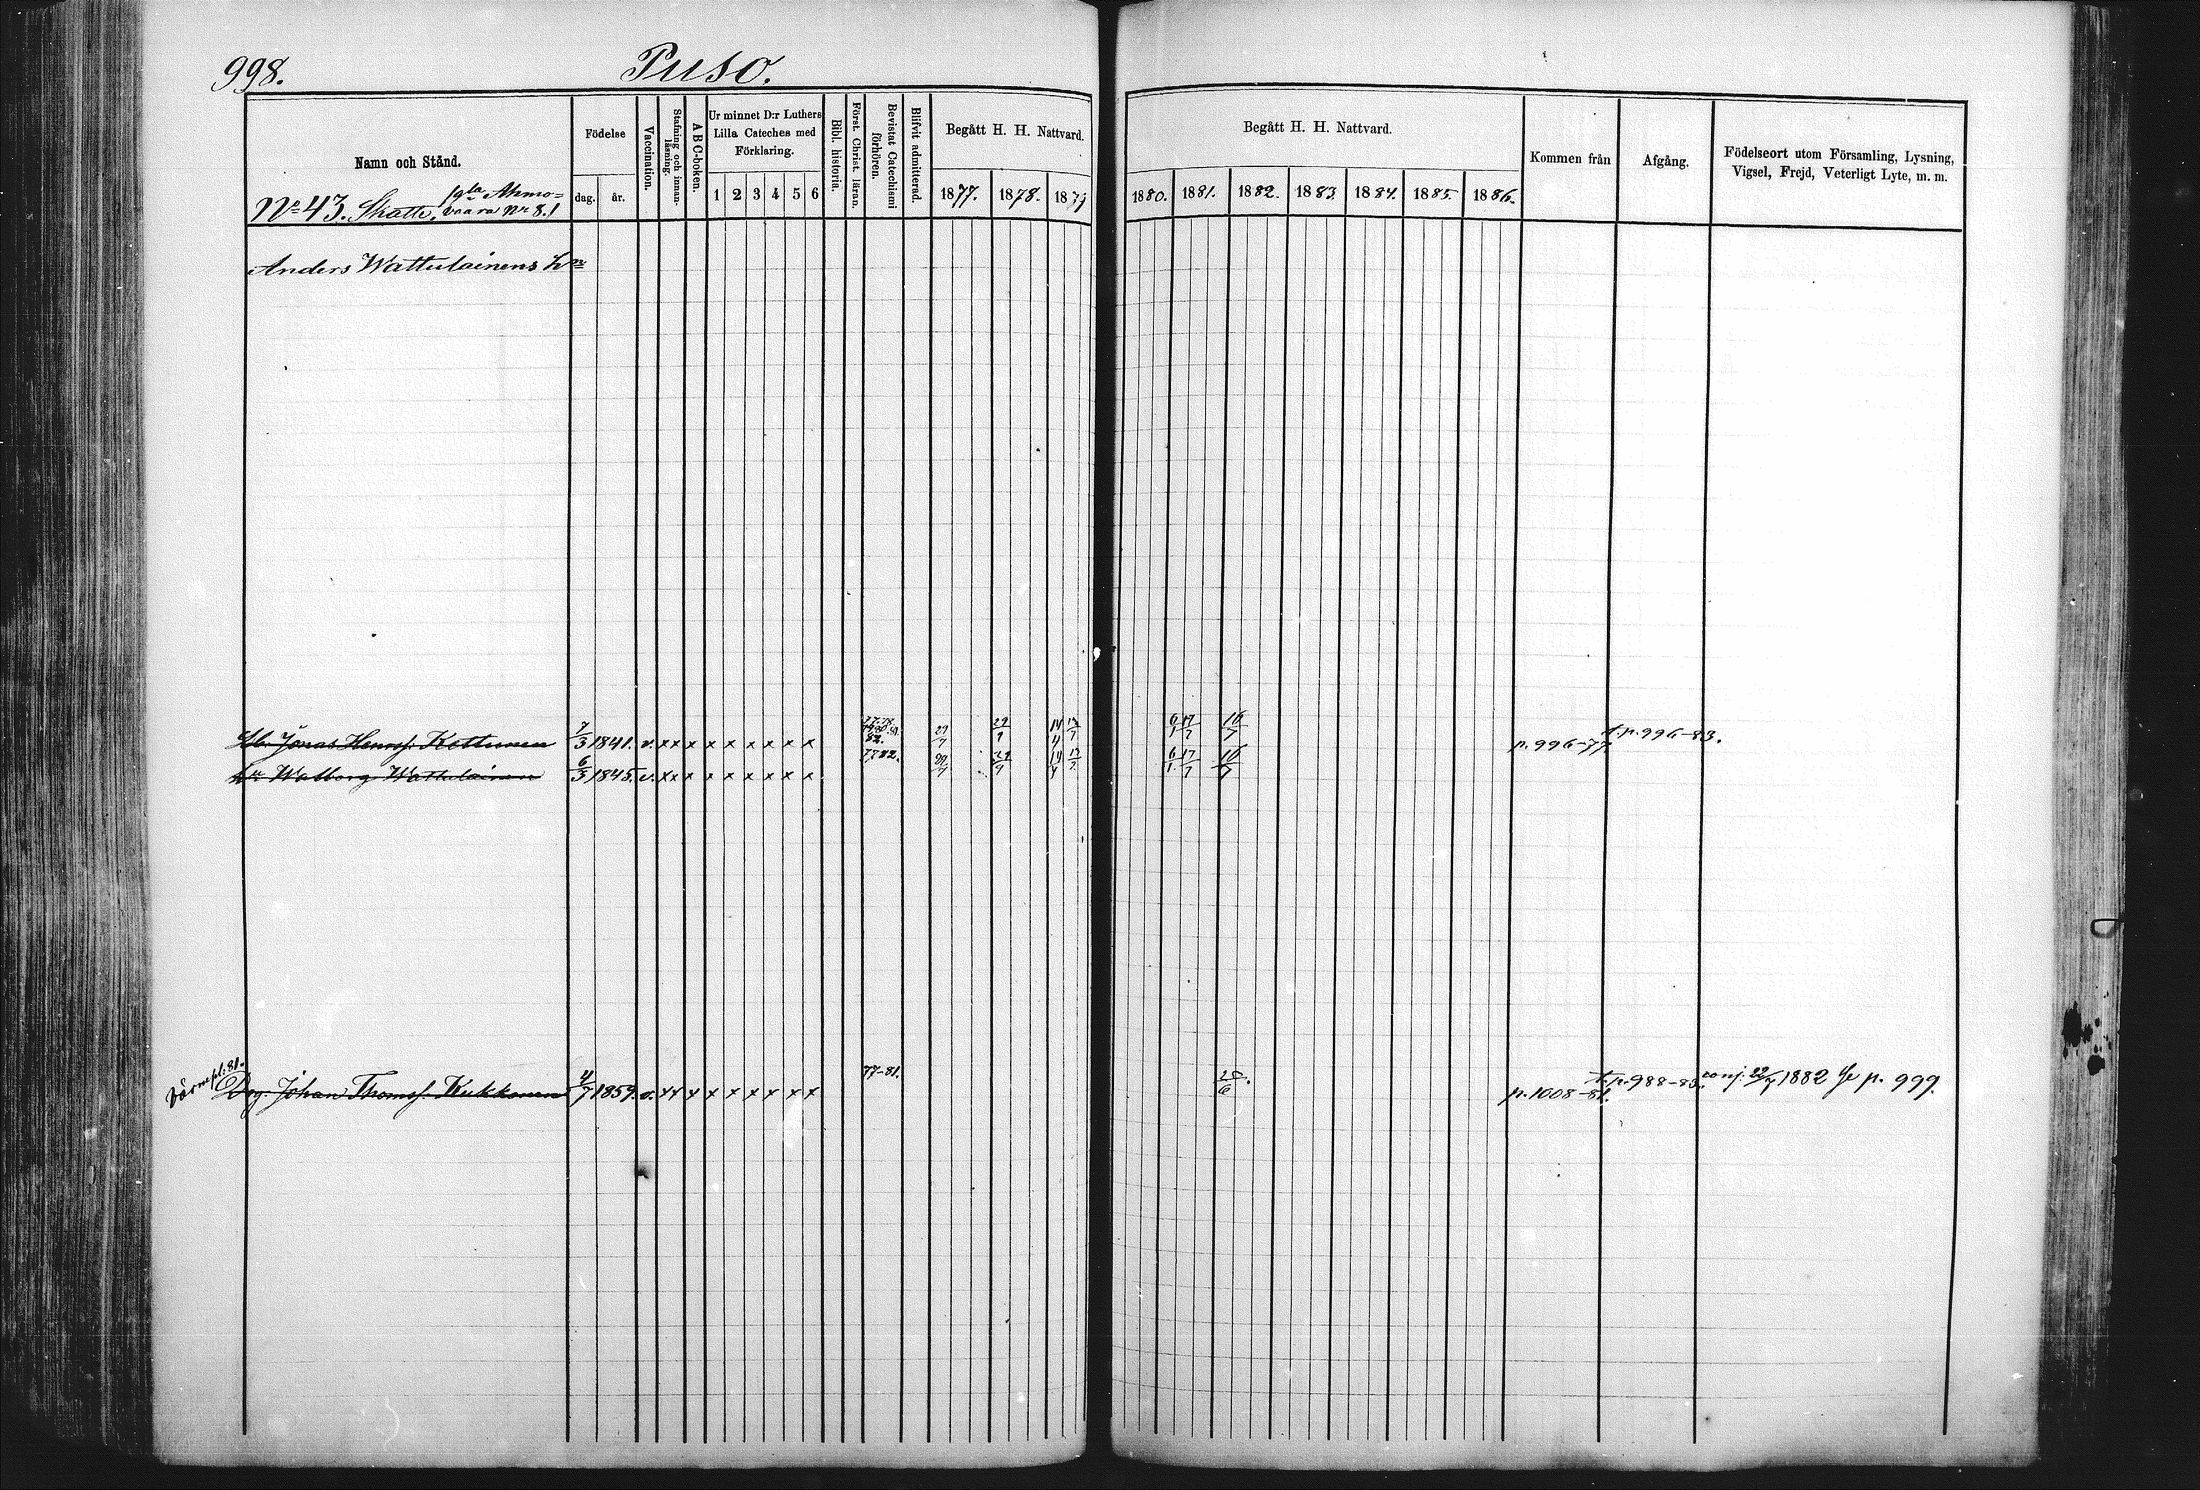 998.
Puso.
Namn och Stånd.
No 43. Skatte,
vaara No 8.
Födelse
dag.
år.
Vaccination.
Stafning och innan-
läsning.
A B C-boken.
Ur minnet D:r Luthers
Lilla Cateches med
Förklaring.
1 2 3 4 5 6
Bibl. historia.
Förest. Christ. läran.
Bevistat Catechismi
förhören.
Blifvit admitterad.
Begått H. H. Nattvard.
1877. 1878. 1879
Begått H. H. Nattvard.
1880. 1881. 1882. 1883. 1884. 1885. 1886.
Kommen från
Afgång.
Födelseort utom Församling, Lysning,
Vigsel, Frejd, Veterligt Lyte, m. m.
Anders Wattulainens
Jonas Henrss. Kettunen 7/3 1841. v. x x x x x x x x x 82. 6/1 17/7 16/7 p. 996-77. t. p. 996-83.
Walborg Wattulainen 6/3 1845. v. x x x x x x x x x 77 82. 6/1 17/7 16/7
Drg. Johan Thomss. Kukkonen 4/7 1859. v. x x x x x x x x x 77-81. 25/6 p. 1008-81. t. p. 988-83. conj. 22/7 1882 Se p. 999.